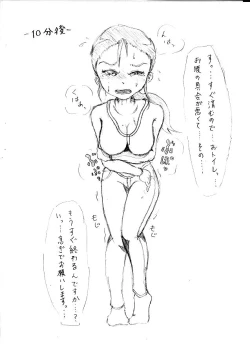 ~10分後~
すっ…すぐ済むので…おトイレ…
お腹の具合が悪くて…その…
はぁ
もじ
もじ
もうすぐ終わるんですか…?
いっ…急ぎでお願いします…